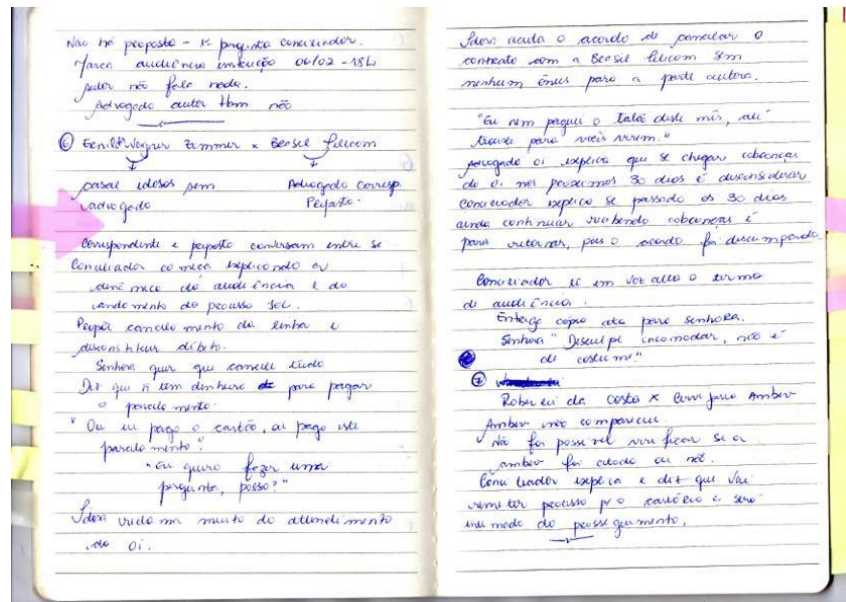 Não há proposta - pergunta conciliador.
Marca audiência instrução 06/02 - 18h
autor não fala nada.
Advogado autor tbm não
⑥ Wagner Zammer x Brasil Telecom
casal idosos sem
advogado
Advogado corresp.
Preposto.
Correspondente e preposto conversam entre si
Conciliador começa explicando a
dinâmica da audiência e do
andamento do processo JEC.
Propõe cancelamento da linha e
desconstituir débito.
Senhora quer que cancele tudo
Diz que ñ tem dinheiro para pagar
o parcelamento.
"Ou eu pago o cartão, ou pago este
parcelamento".
"Eu quero fazer uma
pergunta, posso?"
Idosa reclama muito do atendimento
da Oi.
Idosa aceita o acordo de cancelar o
contrato com a Brasil Telecom sem
nenhum ônus para a parte autora.
"Eu nem paguei o talão deste mês, até
trouxe para vocês verem."
Advogado oi explica que se chegar cobrança
da oi nos próximos 30 dias é desconsiderar
Conciliador explica se passado os 30 dias
ainda continuar recebendo cobranças é
para retornar, pois o acordo foi descumprido.
Conciliador lê em voz alta o termo
de audiência.
Entrega cópia ata para senhora.
Senhora "Desculpe incomodar, não é
de costume."
⑦
da Costa x Ambev
Ambev não compareceu.
Não foi possível verificar se a
ambev foi citada ou não.
Conciliador explica e diz que vai
remeter processo p/ o cartório e será
intimado do prosseguimento.